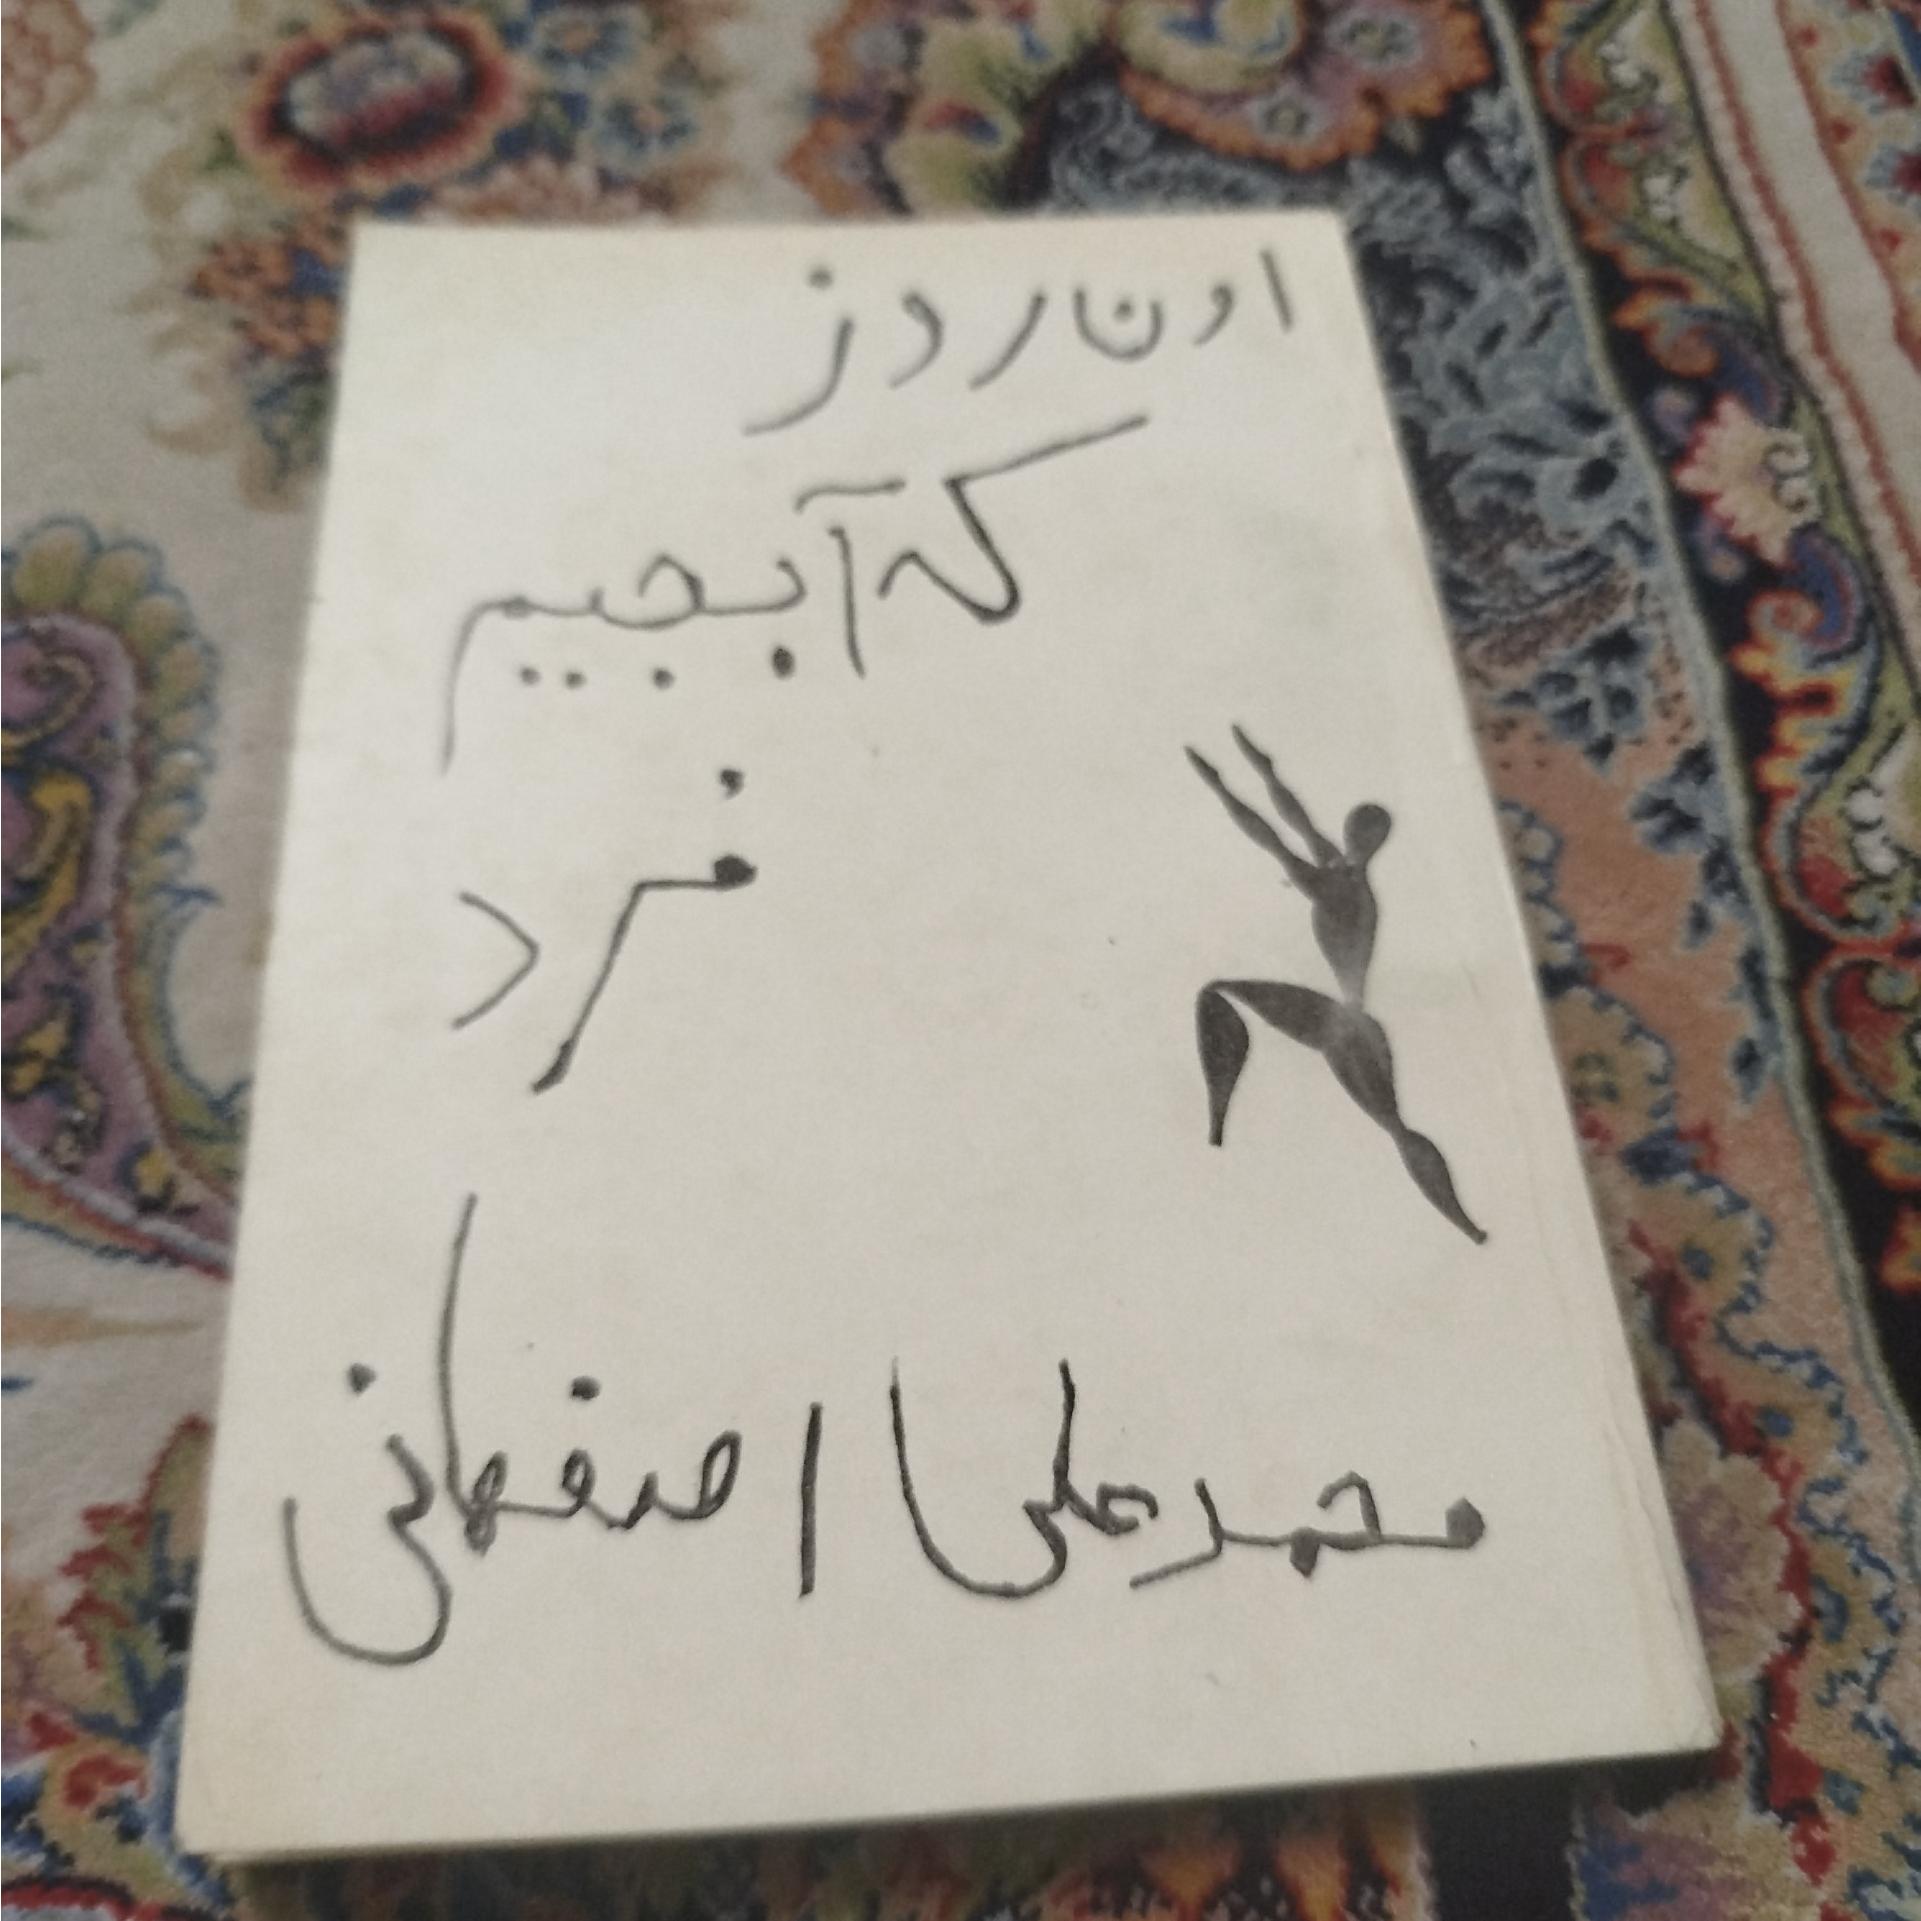 اون روز
که آبجیم
مُرد
محمدعلی اصفهانی